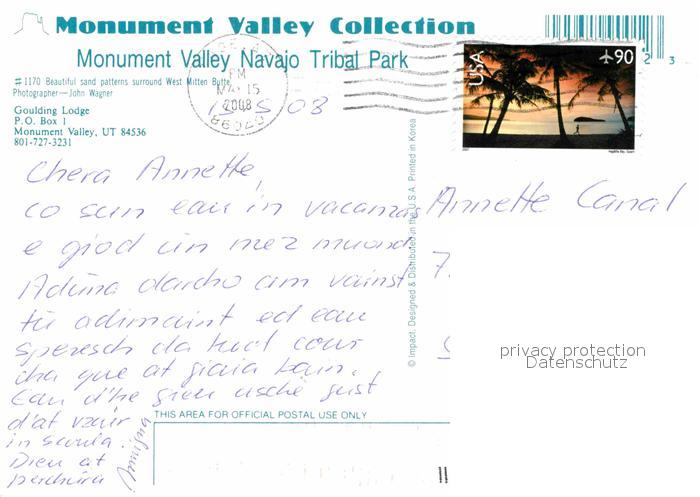 Monument Valley Collection
Monument Valley Navajo Tribal Park
#1170 Beautiful sand patterns surround West Mitten Butte
Photographer—John Wagner
Goulding Lodge
P.O. Box 1
Monument Valley, UT 84536
801-727-3231
PM
MAY 15
2008
USA
90
2 3
15.5.08
Chera Annette,
co sun eau in vacanzas
e giod ün mez muond
Adüna darcho am vainst
tü adimaint ed eau
speresch da tuot cour
cha que at giaja bain.
Eau d'he gieu uschè gust
d'at vzair
in scoula.
Dieu at
perchüra
Annette Canal
7.
© Impact. Designed & Distributed in the U.S.A. Printed in Korea
THIS AREA FOR OFFICIAL POSTAL USE ONLY
privacy protection
Datenschutz